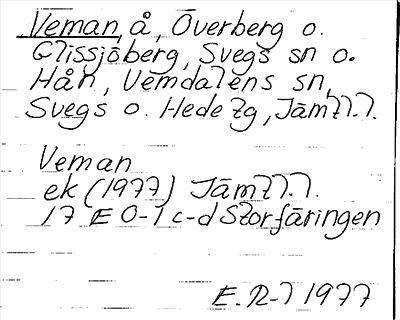 Veman, å, Överberg o.
Glissjöberg, Svegs sn o.
Hån, Vemdalens sn,
Svegs o. Hede tg, Jämtl. l.
Veman
ek (1977) Jämtl. l.
17 E 0-1 c-d Storfäringen
E. R-l 1977